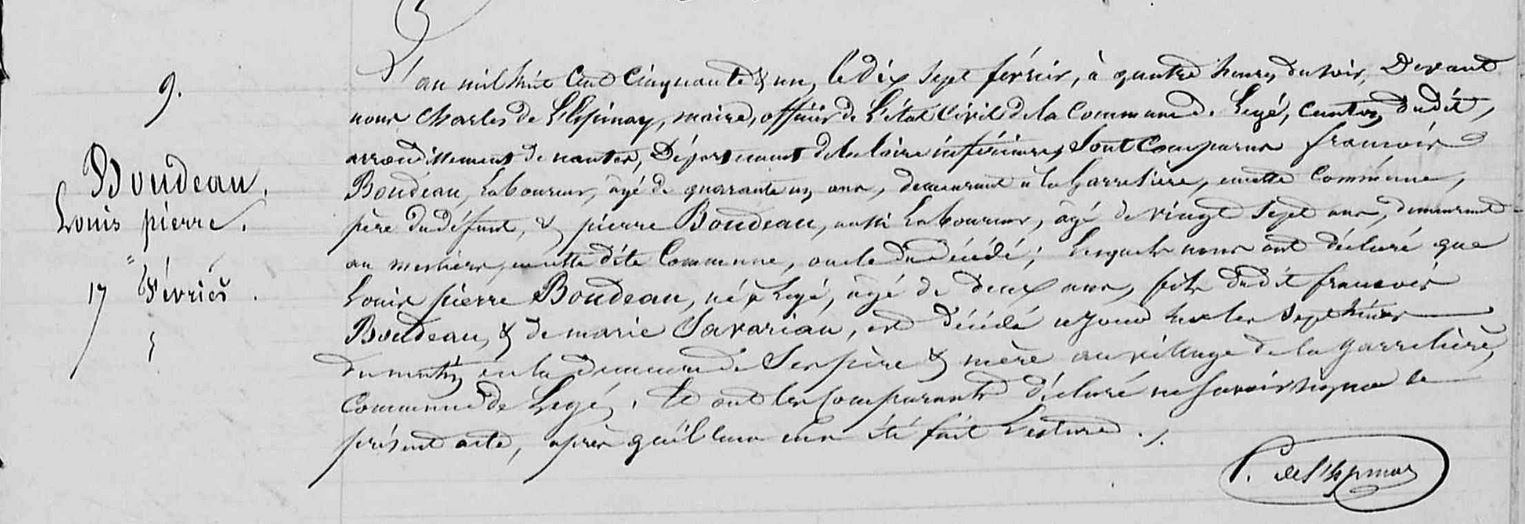 9.
Boudeau.
Louis pierre.
17 février.
L'an mil huit cent cinquante & un, le dix sept février, à quatre heures du soir, Devant
nous Charles de L'Espinay, maire, officier de L'état Civil de la Commune de Legé, canton dudit,
arrondissement de nantes, Département de la loire inférieure, Sont Comparus françois
Boudeau, laboureur, âgé de quarante un ans, demeurant à la Garrelière, en cette Commune,
père du défunt, & pierre Boudeau, aussi laboureur, âgé de vingt sept ans, demeurant
au en cette dite Commune, oncle du décédé; lesquels nous ont déclaré que
Louis pierre Boudeau, né à Legé, âgé de deux ans, fils dudit françois
Boudeau, & de marie Savariau, est décédé ce jour sur les Sept heures
du matin en la demeure de Ses père & mère au village de la garrelière,
Commune de Legé. Et ont les Comparants déclaré ne Savoir signer le
présent acte, après qu'il leur en a été fait Lecture ./.
C. de l'Espinay